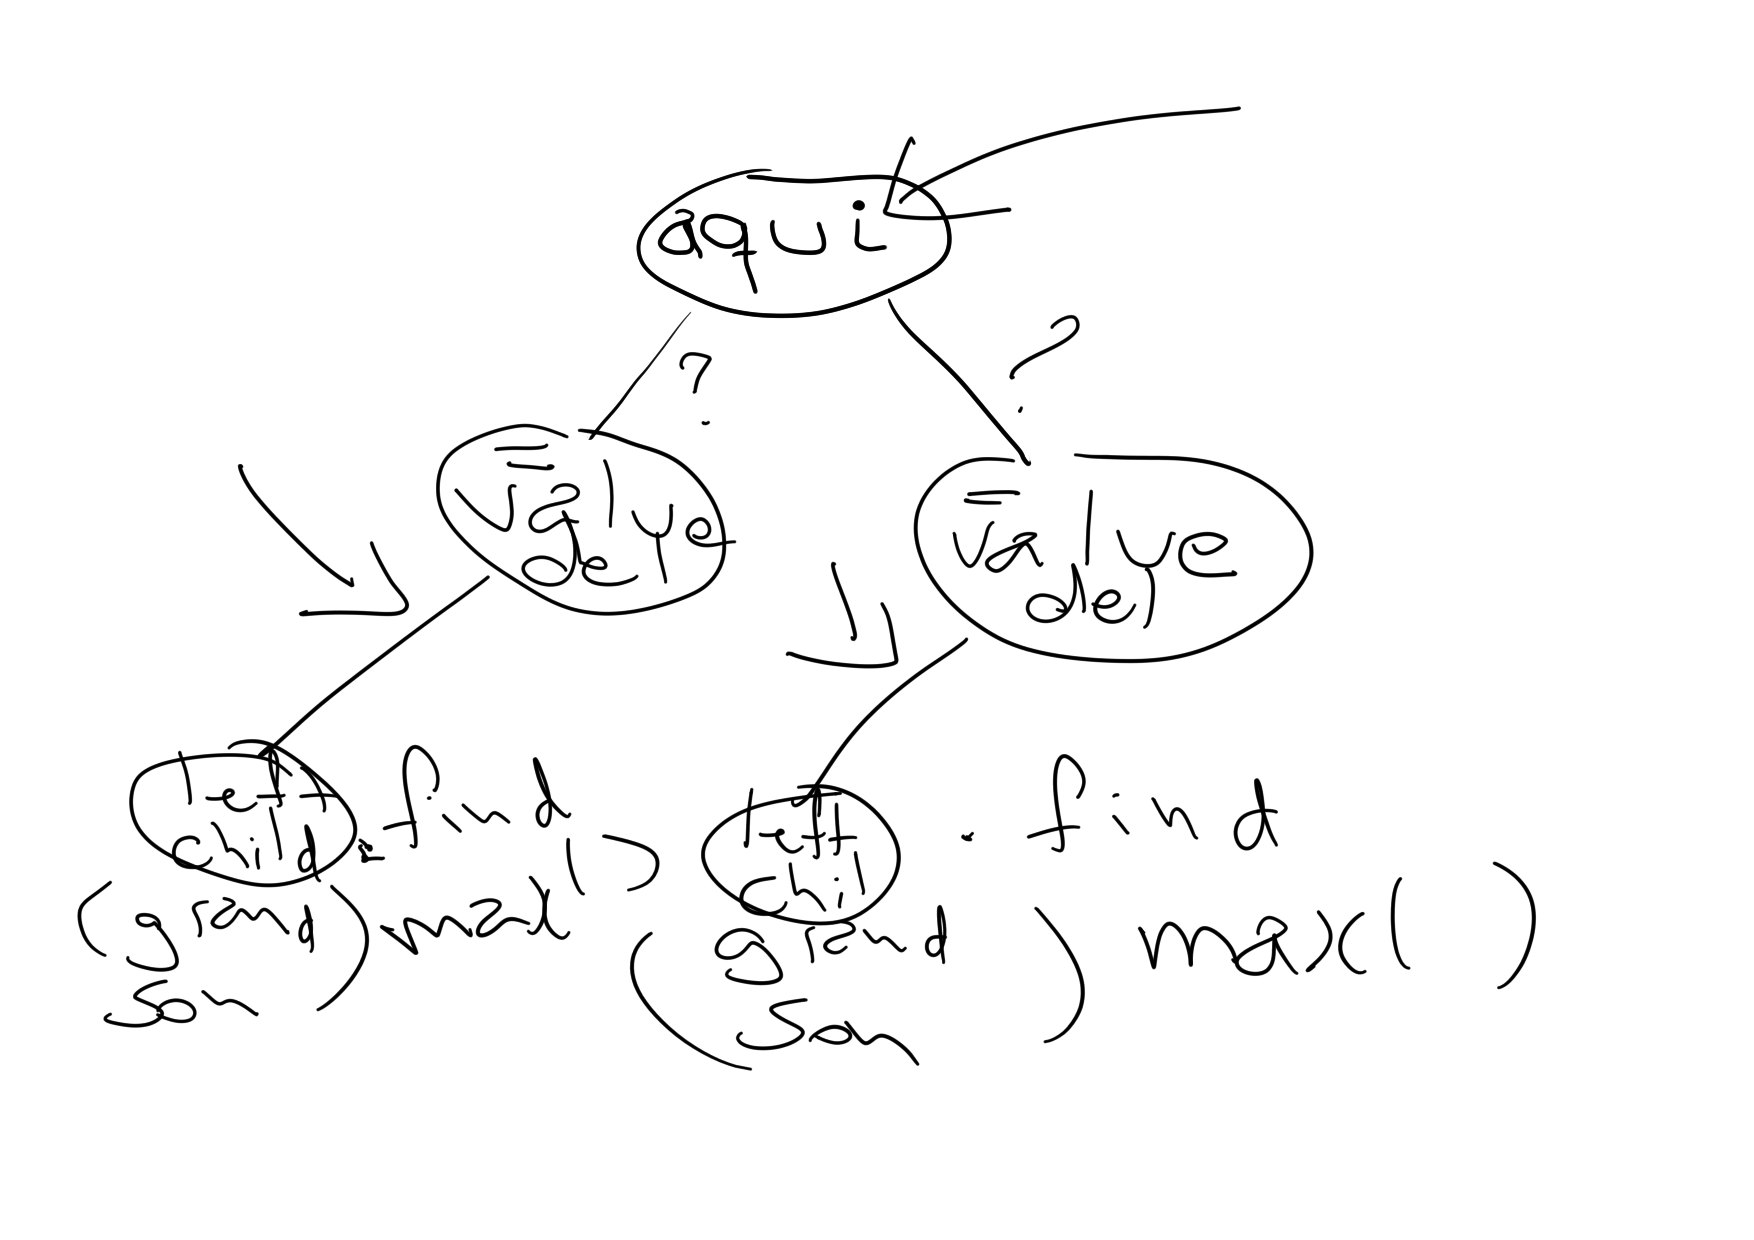 aqui
?
?
= value del
= value del
left child .find max()
(grand son)
left chil . find max( )
(grand son)